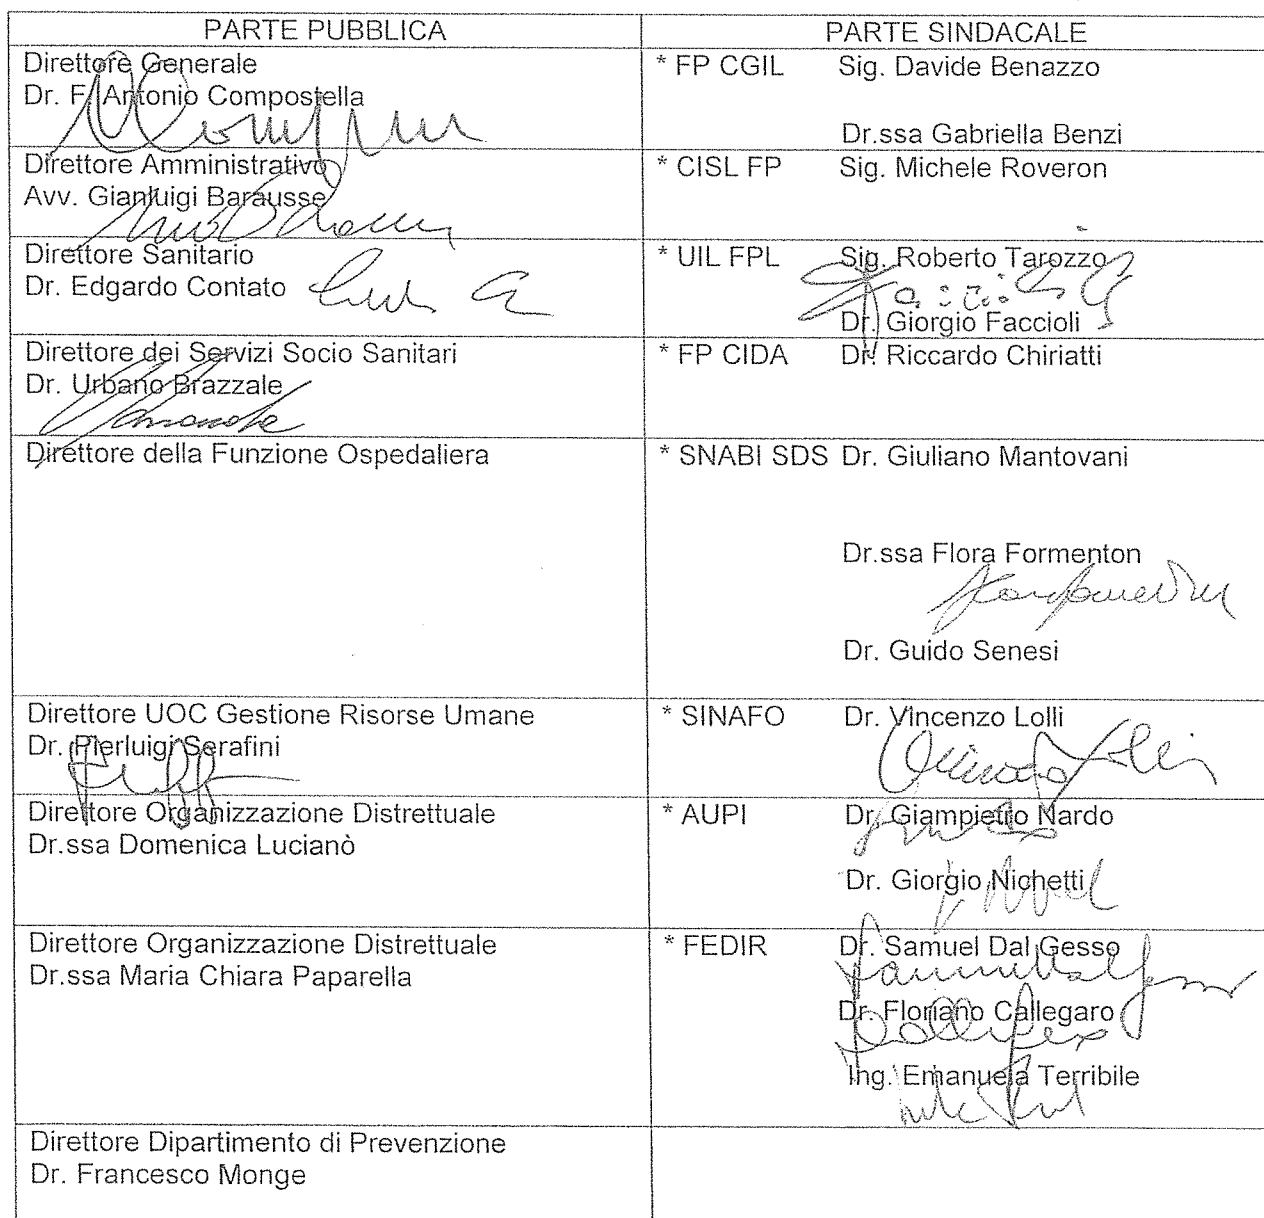 PARTE PUBBLICA
PARTE SINDACALE
Direttore Generale
Dr. F. Antonio Compostella
* FP CGIL Sig. Davide Benazzo
Dr.ssa Gabriella Benzi
Direttore Amministrativo
Avv. Gianluigi Barausse
* CISL FP Sig. Michele Roveron
Direttore Sanitario
Dr. Edgardo Contato
* UIL FPL Sig. Roberto Tarozzo
Dr. Giorgio Faccioli
Direttore dei Servizi Socio Sanitari
Dr. Urbano Brazzale
* FP CIDA Dr. Riccardo Chiriatti
Direttore della Funzione Ospedaliera
* SNABI SDS Dr. Giuliano Mantovani
Dr.ssa Flora Formenton
Dr. Guido Senesi
Direttore UOC Gestione Risorse Umane
Dr. Pierluigi Serafini
* SINAFO Dr. Vincenzo Lolli
Direttore Organizzazione Distrettuale
Dr.ssa Domenica Lucianò
* AUPI Dr. Giampietro Nardo
Dr. Giorgio Nichetti
Direttore Organizzazione Distrettuale
Dr.ssa Maria Chiara Paparella
* FEDIR Dr. Samuel Dal Gesso
Dr. Floriano Callegaro
Ing. Emanuela Terribile
Direttore Dipartimento di Prevenzione
Dr. Francesco Monge